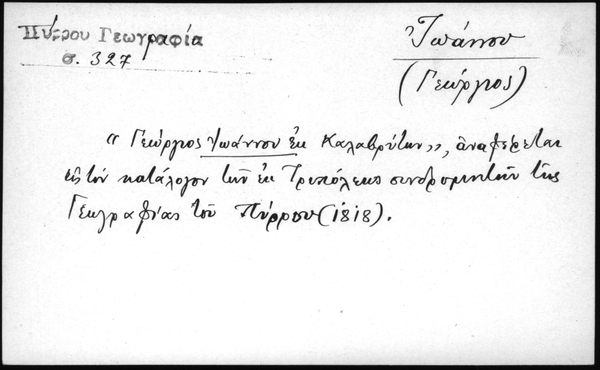 Πύρρου Γεωγραφία
σ. 327
Ἰωάννου
(Γεώργιος)
"Γεώργιος Ἰωάννου ἐκ Καλαβρύτων", ἀναφέρεται
εἰς τὸν κατάλογον τῶν ἐκ Τριπόλεως συνδρομητῶν τῆς
Γεωγραφίας τοῦ Πύρρου (1818).